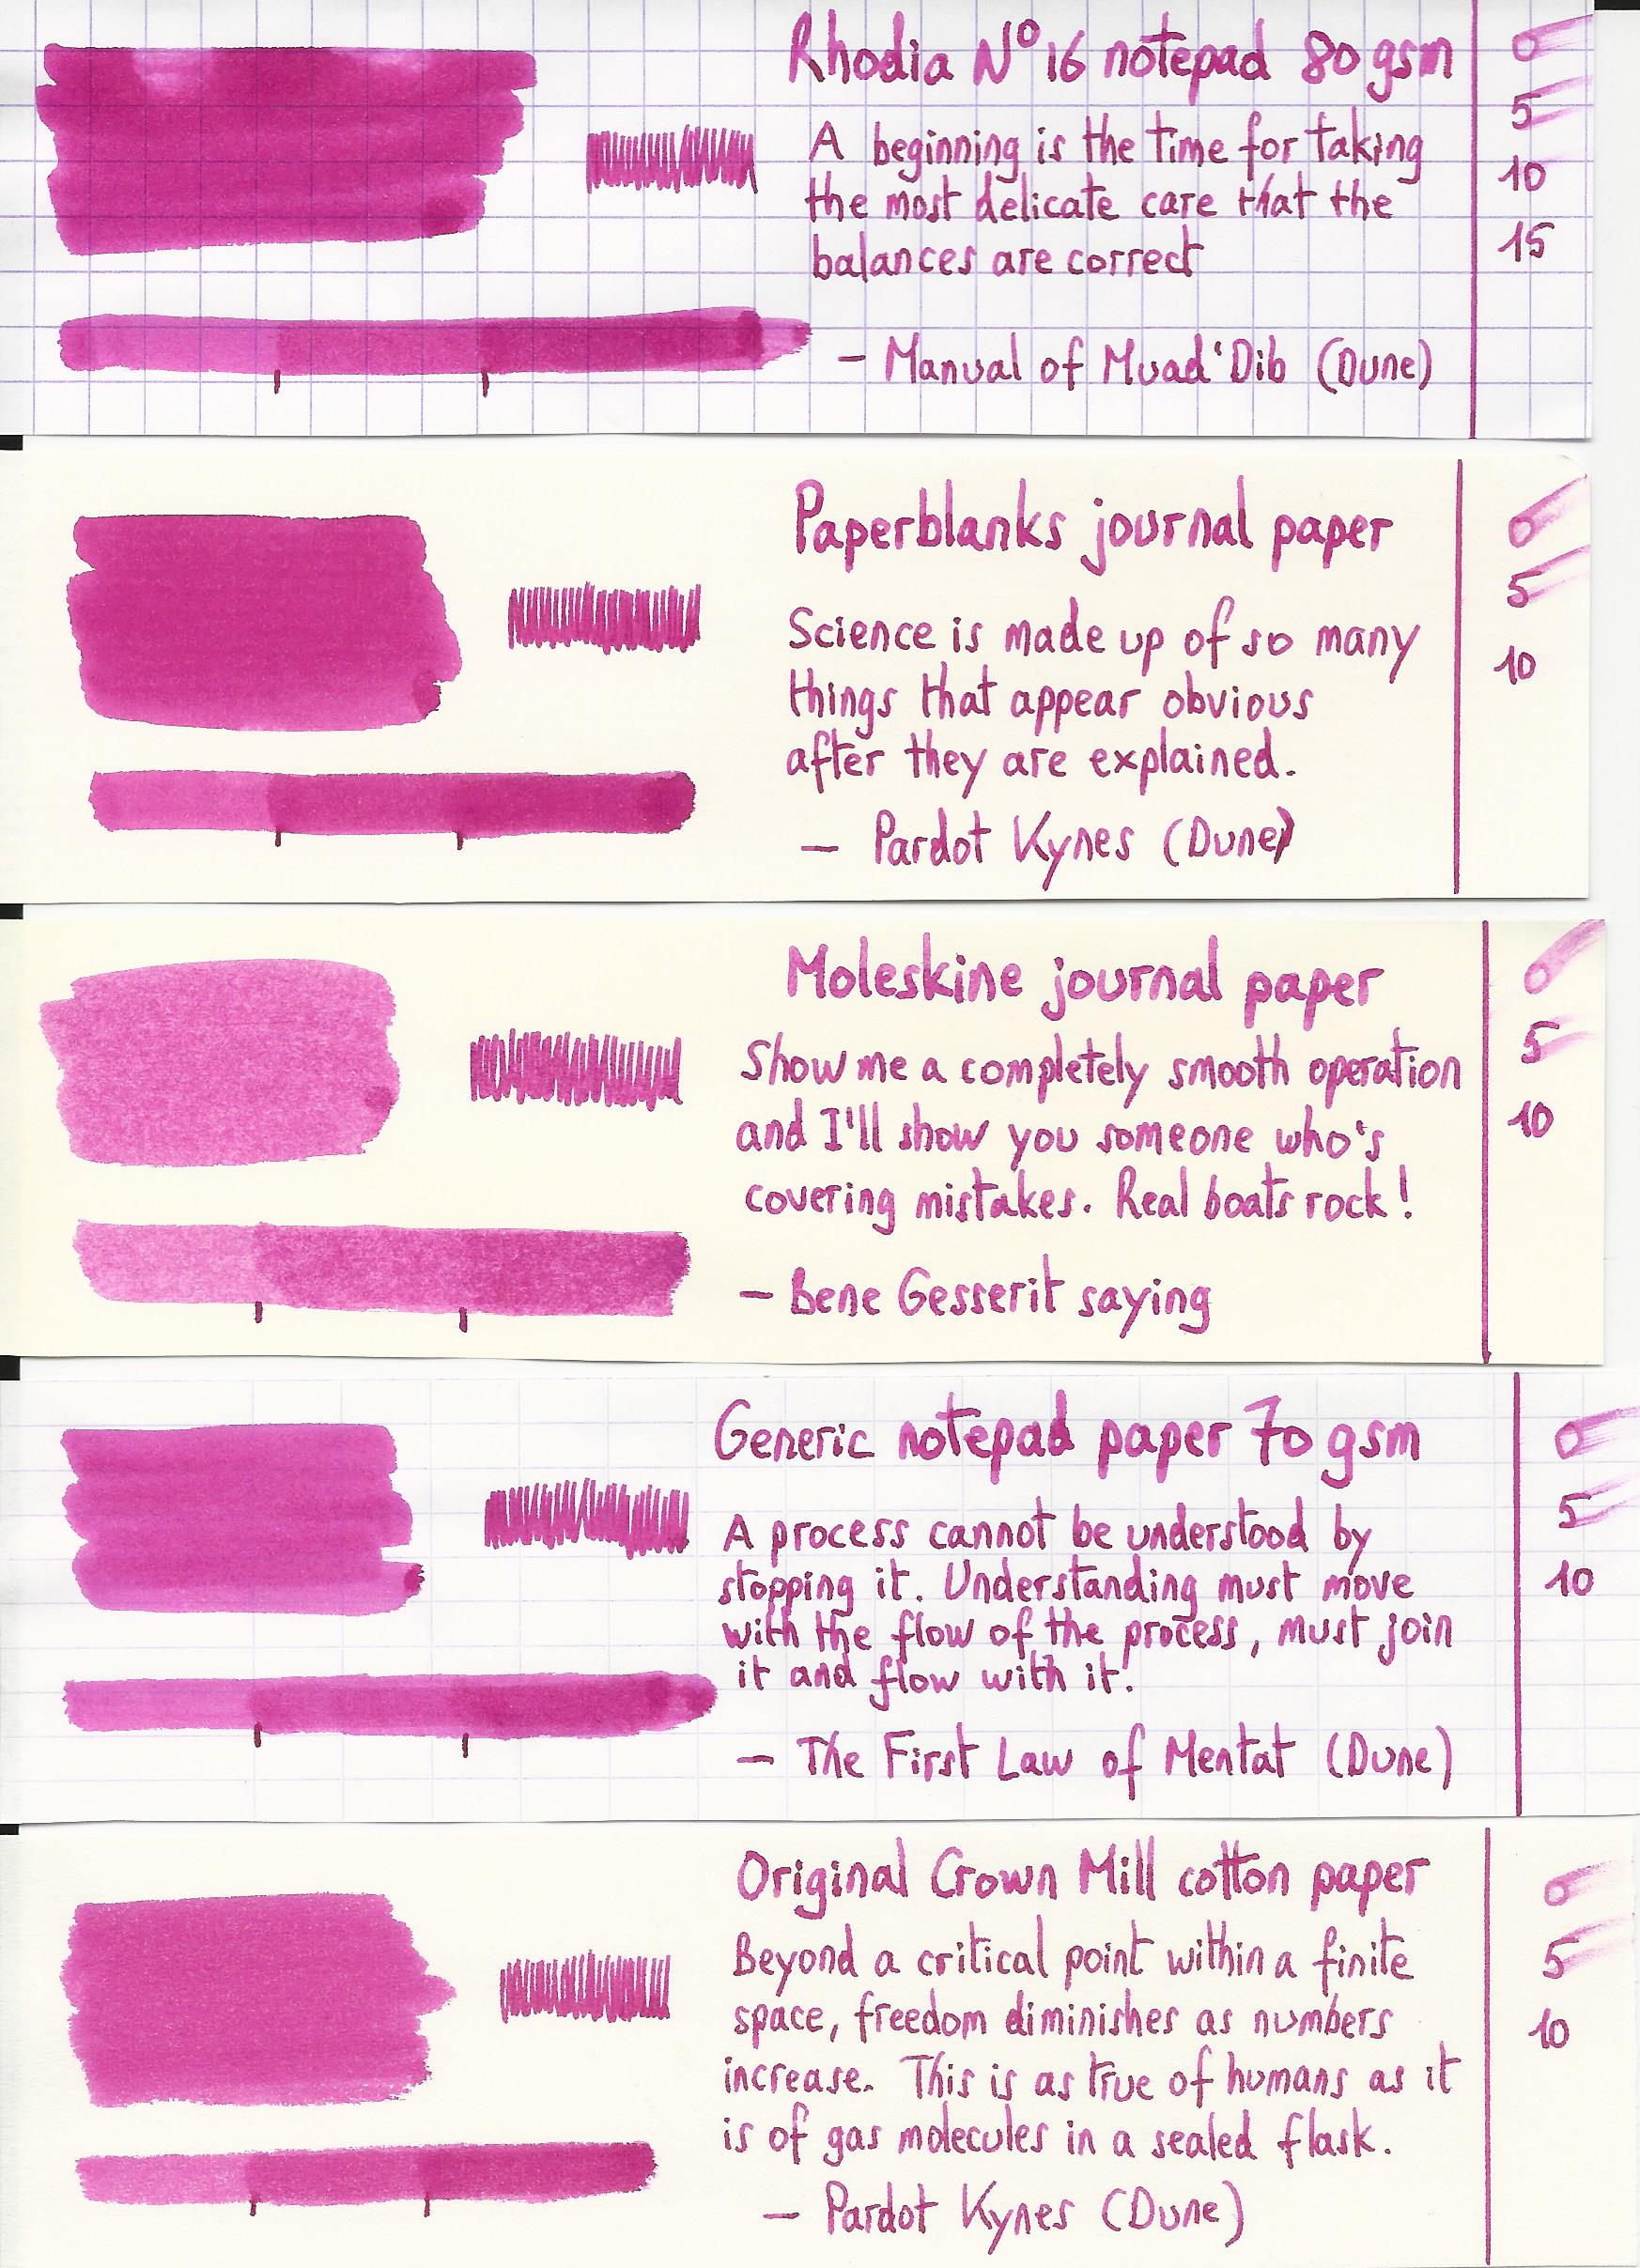 Rhodia N° 16 notepad 80 gsm
A beginning is the time for taking
the most delicate care that the
balances are correct
— Manual of Muad'Dib (Dune)
0
5
10
15
Paperblanks journal paper
Science is made up of so many
things that appear obvious
after they are explained.
— Pardot Kynes (Dune)
0
5
10
Moleskine journal paper
Show me a completely smooth operation
and I'll show you someone who's
covering mistakes. Real boats rock!
— Bene Gesserit saying
0
5
10
Generic notepad paper 70 gsm
A process cannot be understood by
stopping it. Understanding must move
with the flow of the process, must join
it and flow with it!
— The First Law of Mentat (Dune)
0
5
10
Original Crown Mill cotton paper
Beyond a critical point within a finite
space, freedom diminishes as numbers
increase. This is as true of humans as it
is of gas molecules in a sealed flask.
— Pardot Kynes (Dune)
0
5
10